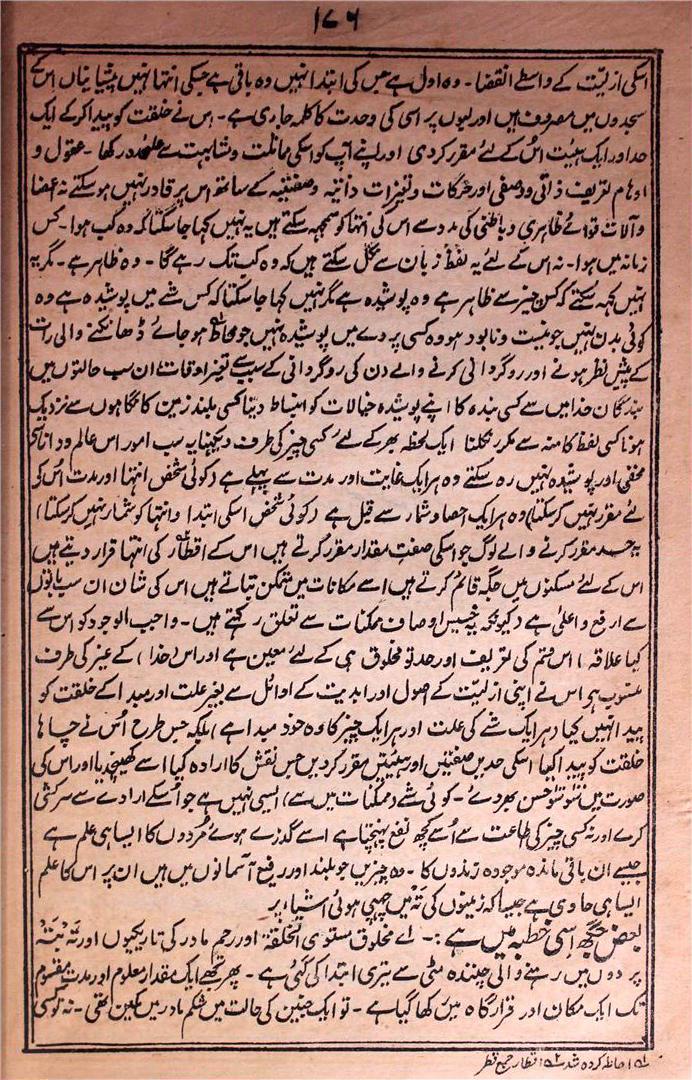 ۱۷۶
اسکی ازلیّت کے واسطے انقضا۔ وہ اول ہے جس کی ابتدا نہیں وہ باقی ہے جسکی انتہا نہیں پیشانیاں اس کے
سجدوں میں مصروف ہیں اور لبوں پر اسی کی وحدت کا کلمہ جاری ہے۔ اس نے خلقت کو پیدا کرکے ایک
حد اور ایک ہیئت اس کے لئے مقرر کردی اور اپنے آپ کو اسکی مماثلت و مشابہت سے علیحدہ رکھا۔ عقول و
اوہام تعریف ذاتی و وصفی اور حرکات و تغیرات ذاتیہ و صفتیہ کے ساتھ اس پر قادر نہیں ہوسکتے نہ اعضا
و آلات قوائے ظاہری و باطنی کی مدد سے اس کی انتہا کو سمجھ سکتے ہیں یہ نہیں کہا جاسکتا کہ وہ کب ہوا۔ کس
زمانہ میں ہوا۔ نہ اس کے لئے یہ لفظ زبان سے نکل سکتے ہیں کہ وہ کب تک رہے گا۔ وہ ظاہر ہے۔ مگر یہ
نہیں کہہ سکتے کہ کس چیز سے ظاہر ہے وہ پوشیدہ ہے مگر نہیں کہا جاسکتا کہ کس شے میں پوشیدہ ہے وہ
کوئی بدن نہیں جو نیست و نابود ہو وہ کسی پردے میں پوشیدہ نہیں جو محاط ہوجائے ڈھانکنے والی رات
کے پیش نظر ہونے اور روگردانی کرنے والے دن کی روگردانی کے سبب سے تغیر اوقات، ان سب حالتوں میں
بندگان خدا میں سے کسی بندہ کا اپنے پوشیدہ خیالات کو انبساط دینا کسی بلند زمین کا نگاہوں سے نزدیک
ہونا کسی لفظ کا منہ سے مکرر نکلنا ایک لحظہ بھر کے لئے کسی چیز کی طرف دیکھنا یہ سب امور اس عالم و دانا سے
مخفی اور پوشیدہ نہیں رہ سکتے وہ ہر ایک غایت اور مدت سے پہلے ہے (کوئی شخص انتہا اور مدت اس کے
لئے مقرر نہیں کرسکتا) وہ ہر ایک احصا و شمار سے قبل ہے (کوئی شخص اسکی ابتدا و انتہا کو شمار نہیں کرسکتا)
یہ حد مقرر کرنے والے لوگ جو اسکی صفتِ مقدار مقرر کرتے ہیں اس کے اقطار کی انتہا قرار دیتے ہیں
اس کے لئے مسکنوں میں جگہ قائم کرتے ہیں اسے مکانات میں متمکن بتاتے ہیں اس کی شان ان سب باتوں
سے ارفع و اعلیٰ ہے (کیونکہ یہ خسیس اوصاف ممکنات سے تعلق رکھتے ہیں۔ واجب الوجود کو اس سے
کیا علاقہ) اس قسم کی تعریف اور حد تو مخلوق ہی کے لئے معین ہے اور اس (خدا) کے غیر کی طرف
منسوب ہو اس نے اپنی ازلیّت کے اصول اور ابدیت کے اوائل سے بغیر علت اور مبدا کے خلقت کو
پیدا نہیں کیا (ہر ایک شے کی علت اور ہر ایک چیز کا وہ خود مبدا ہے) بلکہ جس طرح اس نے چاہا
خلقت کو پیدا کیا اسکی حدیں صفتیں اور ہیئتیں مقرر کردیں جس نقش کا ارادہ کیا اسے کھینچ دیا اور اس کی
صورت میں نو بنو حسن بھر دئے۔ کوئی شے (ممکنات میں سے) ایسی نہیں ہے جو اُسکے ارادے سے سرکشی
کرے اور نہ کسی چیز کی طاعت سے اُسے کچھ نفع پہنچتا ہے اسے گذرے ہوئے مُردوں کا ایسا ہی علم ہے
جیسے ان باقی ماندہ موجودہ زندوں کا۔ وہ چیزیں جو بلند اور رفیع آسمانوں میں ہیں ان پر اس کا علم
ایسا ہی حاوی ہے جیسا کہ زمینوں کی تہ میں چھپی ہوئی اشیا پر
بعض جگھ اسی خطبہ میں ہے :۔ اے مخلوق مستوی الخلقۃ اور رحم مادر کی تاریکیوں اور تہ بتہ
پردوں میں رہنے والی چنندہ مٹی سے تیری ابتدا کی گئی ہے۔ پھر تجھے ایک مقدار معلوم اور مدت مقسوم
تک ایک مکان اور قرارگاہ میں رکھا گیا ہے۔ تو ایک جنین کی حالت میں شکم مادر میں مکین تھی۔ نہ تو کسی
۱؎ احاطہ کردہ شدہ ۲؎ اقطار جمع قطر